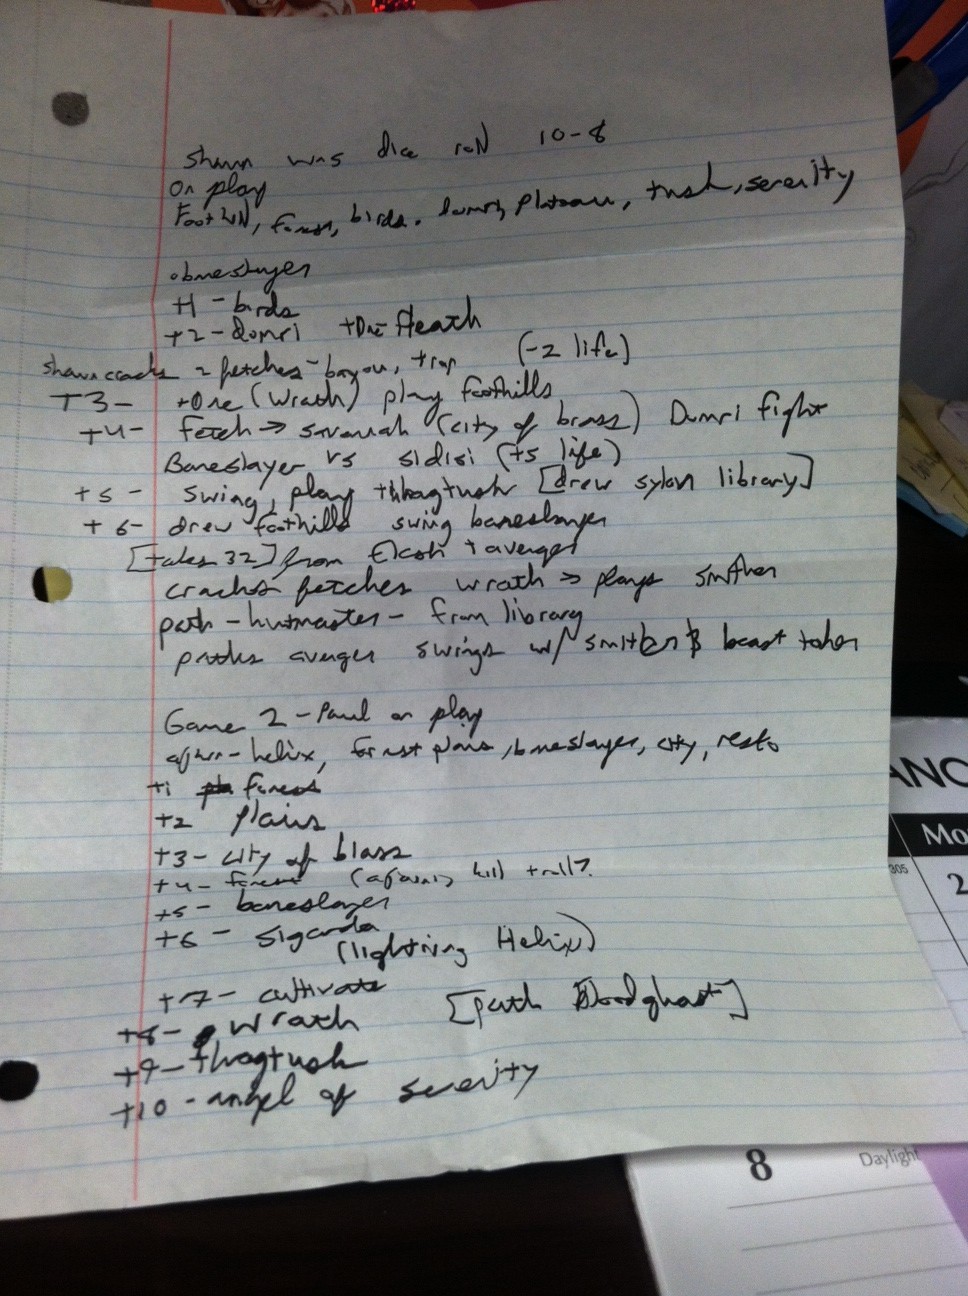 Shawn wns dice roll 10-8
On play
Foothill, forest, birds, domri, plateau, tusk, serenity
baneslayer
t1 - birds
t2 - domri
shawn cracks 2 fetches - bayou, trop (-2 life)
T3 - (Wrath) play foothills
t4 - fetch → savannah (city of brass) Domri fight
Baneslayer vs sidisi (+5 life)
t5 - swing, play thragtusk [drew sylvn library]
t6 - drew foothills swing baneslayer
[takes 32] from + avenger
cracks fetches wrath → plays smiter
path - hutmaster - from library
paths avenger swings w/ smiter & beast token
Game 2 - Paul on play
helix, forest plains, baneslayer, city, resto
t1 forest
t2 plains
t3 - city of blass
t4 - forest
t5 - baneslayer
t6 - sigarda
(lightning Helix)
t7 - cultivate
t8 - wrath [path Bloodghast]
t9 - thragtusk
t10 - angel of serenity
ANC
Mo
305
2
8 Daylight